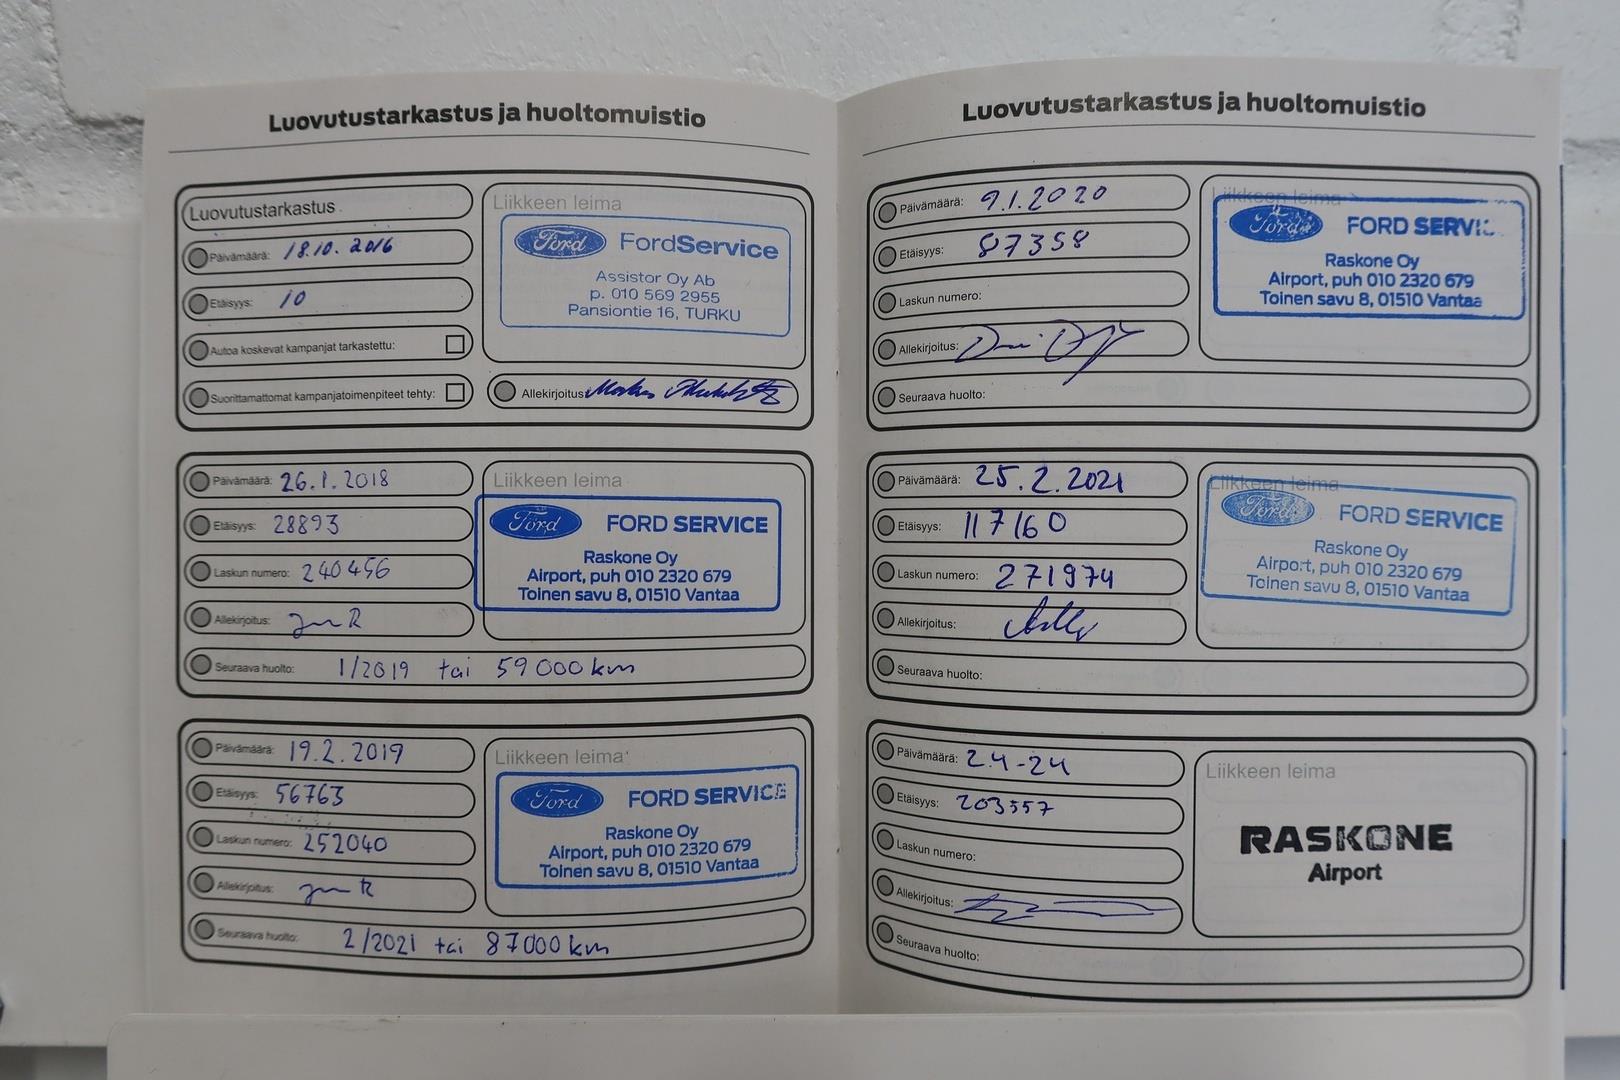 Luovutustarkastus ja huoltomuistio
Luovutustarkastus
Päivämäärä: 18.10.2016
Etäisyys: 10
Autoa koskevat kampanjat tarkastettu:
Suorittamattomat kampanjatoimenpiteet tehty:
Liikkeen leima
Ford FordService
Assistor Oy Ab
p. 010 569 2955
Pansiontie 16, TURKU
Allekirjoitus:
Päivämäärä: 26.1.2018
Etäisyys: 28893
Laskun numero: 240456
Allekirjoitus:
Seuraava huolto: 1/2019 tai 59000 km
Liikkeen leima
Ford FORD SERVICE
Raskone Oy
Airport, puh 010 2320 679
Toinen savu 8, 01510 Vantaa
Päivämäärä: 19.2.2019
Etäisyys: 56763
Laskun numero: 252040
Allekirjoitus:
Seuraava huolto: 2/2021 tai 87000 km
Liikkeen leima
Ford FORD SERVICE
Raskone Oy
Airport, puh 010 2320 679
Toinen savu 8, 01510 Vantaa
Luovutustarkastus ja huoltomuistio
Päivämäärä: 9.1.2020
Etäisyys: 87358
Laskun numero:
Allekirjoitus:
Seuraava huolto:
Liikkeen leima
Ford FORD SERVIC
Raskone Oy
Airport, puh 010 2320 679
Toinen savu 8, 01510 Vantaa
Päivämäärä: 25.2.2021
Etäisyys: 117160
Laskun numero: 271974
Allekirjoitus:
Seuraava huolto:
Liikkeen leima
Ford FORD SERVICE
Raskone Oy
Airport, puh 010 2320 679
Toinen savu 8, 01510 Vantaa
Päivämäärä: 2.4-24
Etäisyys: 203557
Laskun numero:
Allekirjoitus:
Seuraava huolto:
Liikkeen leima
RASKONE
Airport